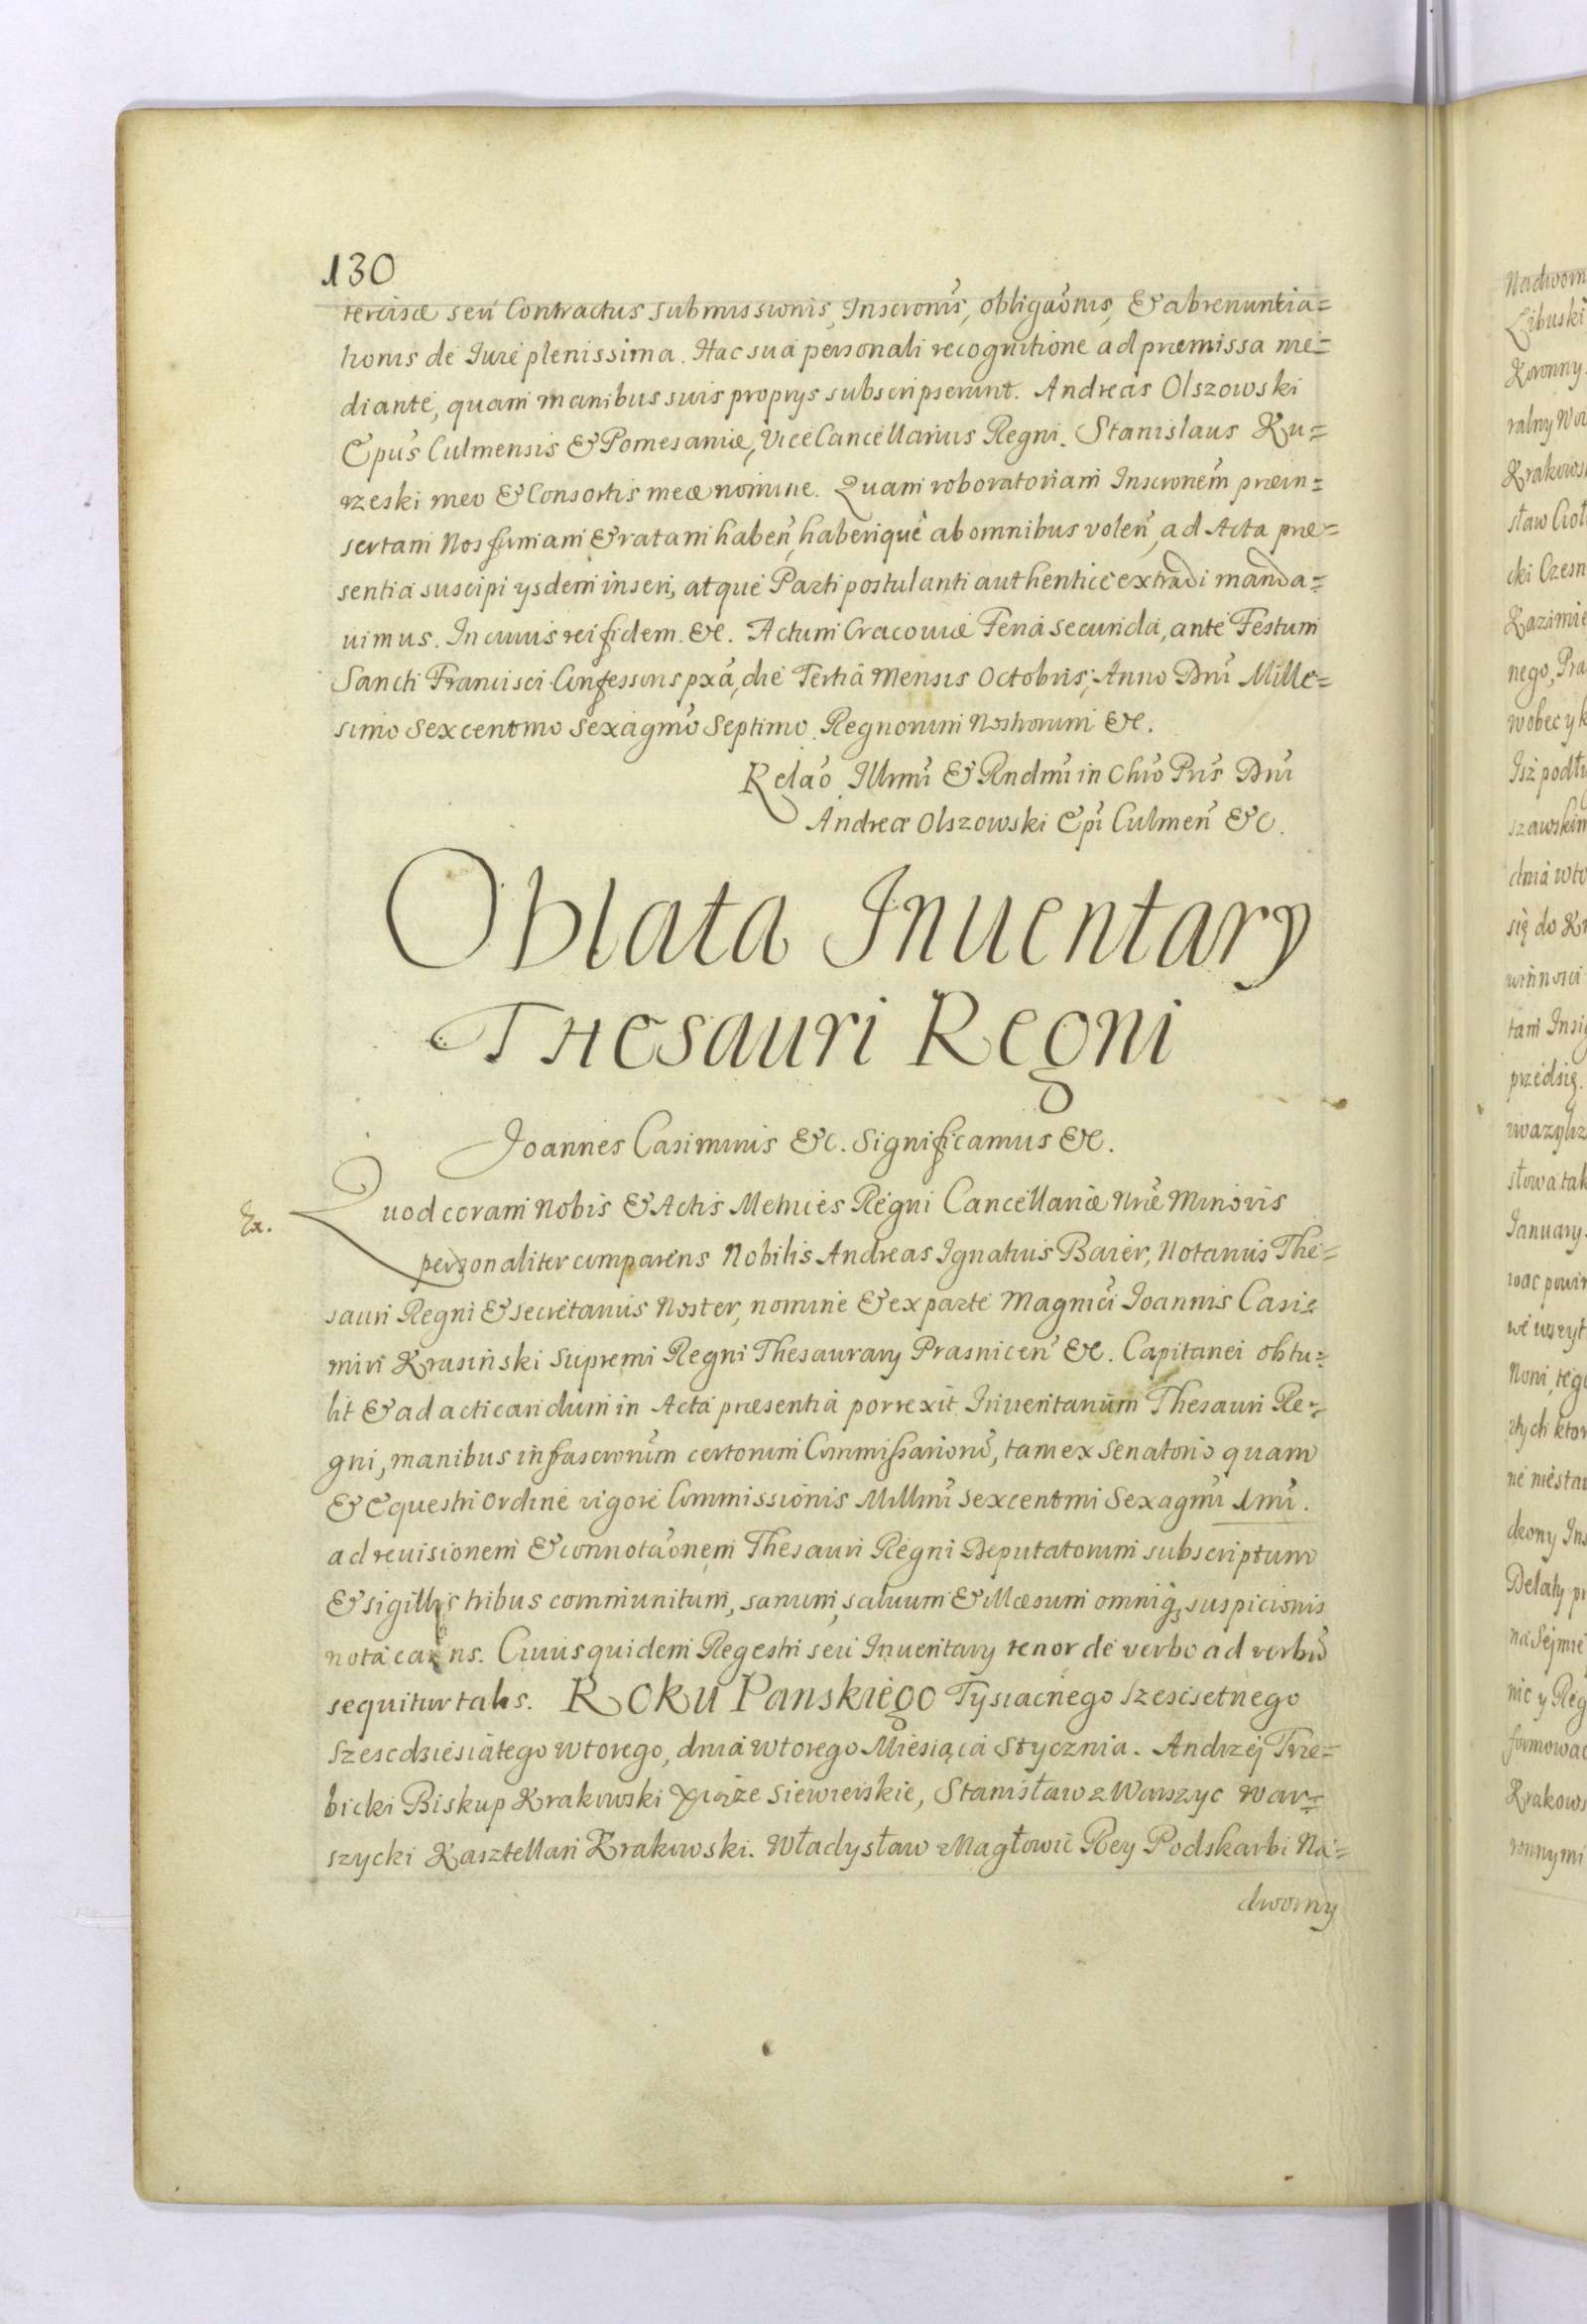 130
tercisæ seu Contractus submissionis, Inscronis̃, obligãonis, & abrenuntia=
tionis de Iure plenissima. Hac sua personali recognitione ad præmissa me=
diante, quam manibus suis proprys subscripserunt. Andreas Olszowski
Epus̃ Culmensis & Pomesaniæ, ViceCancellarius Regni. Stanislaus Ku=
rzeski meo & Consortis meæ nomine. Quam roboratoriam Inscronem̃ præin=
sertam Nos firmam & ratam habeñ, haberique ab omnibus voleñ, ad Acta præ=
sentia suscipi ysdem inseri, atque Parti postulanti authentice extradi manda=
uimus. In cuius rei fidem &c. Actum Cracouiæ Feria secunda, ante Festum
Sancti Francisci Confessoris pxã, die Tertia Mensis Octobris, Anno Dnĩ Mille=
simo Sexcentmo Sexagmõ Septimo. Regnorum Nostrorum &c.
Relaõ Illrmĩ & Rndmĩ in Chrõ Pris̃ Dnĩ
Andreæ Olszowski Epĩ Culmeñ &c.
Oblata Inuentary
THesauri Regni
Joannes Casimirus &c. Significamus &c.
Ex.
Quod coram Nobis & Actis Metrices Regni Cancellariæ Nrẽ Minoris
personaliter comparens Nobilis Andreas Ignatius Baier, Notarius The=
sauri Regni & secretarius Noster, nomine & ex parte Magnicĩ Joannis Casi=
miri Krasiński Supremi Regni Thesaurary Prasniceñ &c. Capitanei obtu=
lit & ad acticandum in Acta præsentia porrexit Inuentarium Thesauri Re=
gni, manibus infrascrorum̃ certorum Commissariorũ, tam ex Senatorio quam
& Equestri Ordine vigore Commissionis Millmĩ Sexcentmi Sexagmĩ 1mĩ.
ad reuisionem & connotãonem Thesauri Regni Deputatorum subscriptum
& sigillis tribus communitum, sanum, saluum & illæsum omniq; suspicionis
nota carens. Cuius quidem Regestri seu Inuentary tenor de verbo ad verbũ
sequitur talis. Roku Panskiego Tysiącnego Szescsetnego
Szescdziesiątego wtorego, dnia wtorego Miesiąca Stycznia. Andrzej Trze=
bicki Biskup Krakowski Xiąże Siewierskie, Stanisław z Warszyc War=
szycki Kasztellan Krakowski. Władysław z Nagłowic Rey Podskarbi Na=
dworny